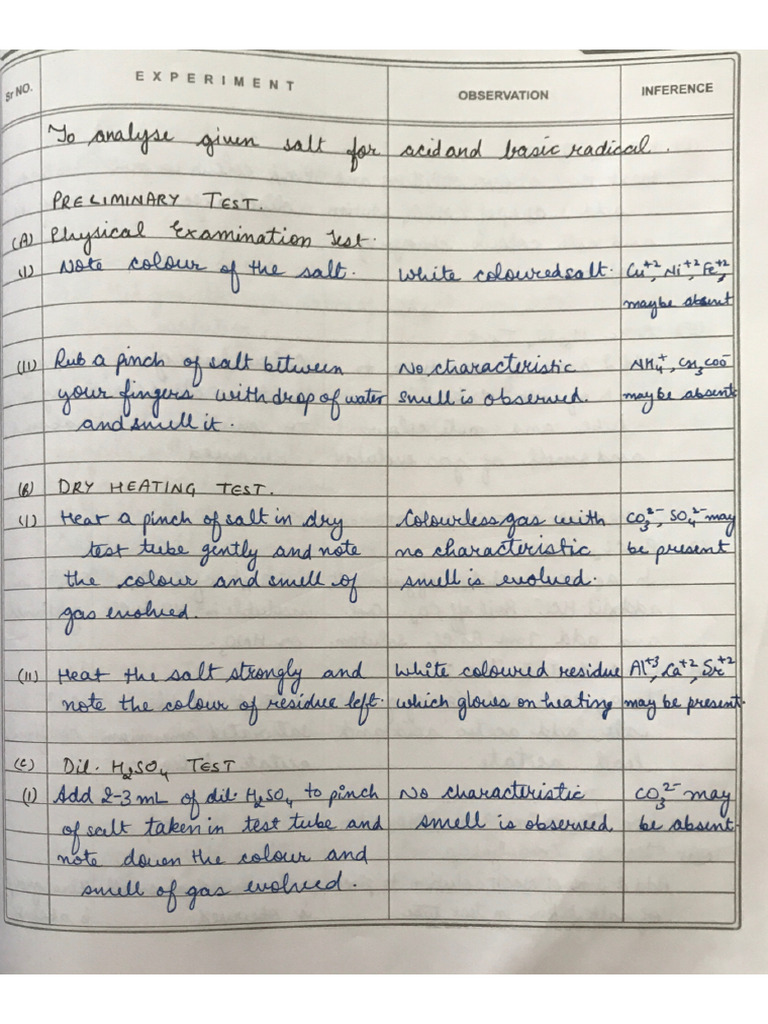 Sr NO. EXPERIMENT OBSERVATION INFERENCE
To analyse given salt for acid and basic radical.
PRELIMINARY TEST.
(A) Physical Examination Test.
(I) Note colour of the salt. White coloured salt. Cu+2, Ni+2, Fe+2,
maybe absent
(II) Rub a pinch of salt between No characteristic NH4+, CH3COO-
your fingers with drop of water smell is observed. maybe absent
and smell it.
(B) DRY HEATING TEST.
(I) Heat a pinch of salt in dry Colourless gas with CO3 2-, SO4 2- may
test tube gently and note no characteristic be present
the colour and smell of smell is evolved.
gas evolved.
(II) Heat the salt strongly and White coloured residue Al+3, Ca+2, Sr+2
note the colour of residue left. which glows on heating may be present.
(C) Dil. H2SO4 TEST
(I) Add 2-3 mL of dil. H2SO4 to pinch No characteristic CO3 2- may
of salt taken in test tube and smell is observed. be absent.
note down the colour and
smell of gas evolved.